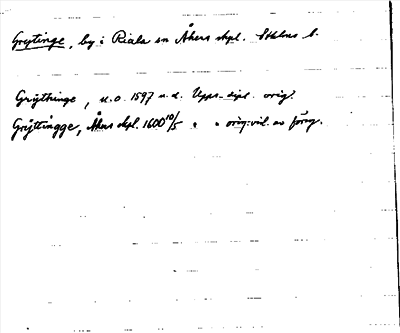 Greytinge, by i Riala sn Åkers skpl. Sthlms l.
Grÿthinge, u.o. 1597 u.d. Upps. dipl. orig.
Grÿttingge, Åkers skpl. 1600 10/5 " " orig: vid. av förog.